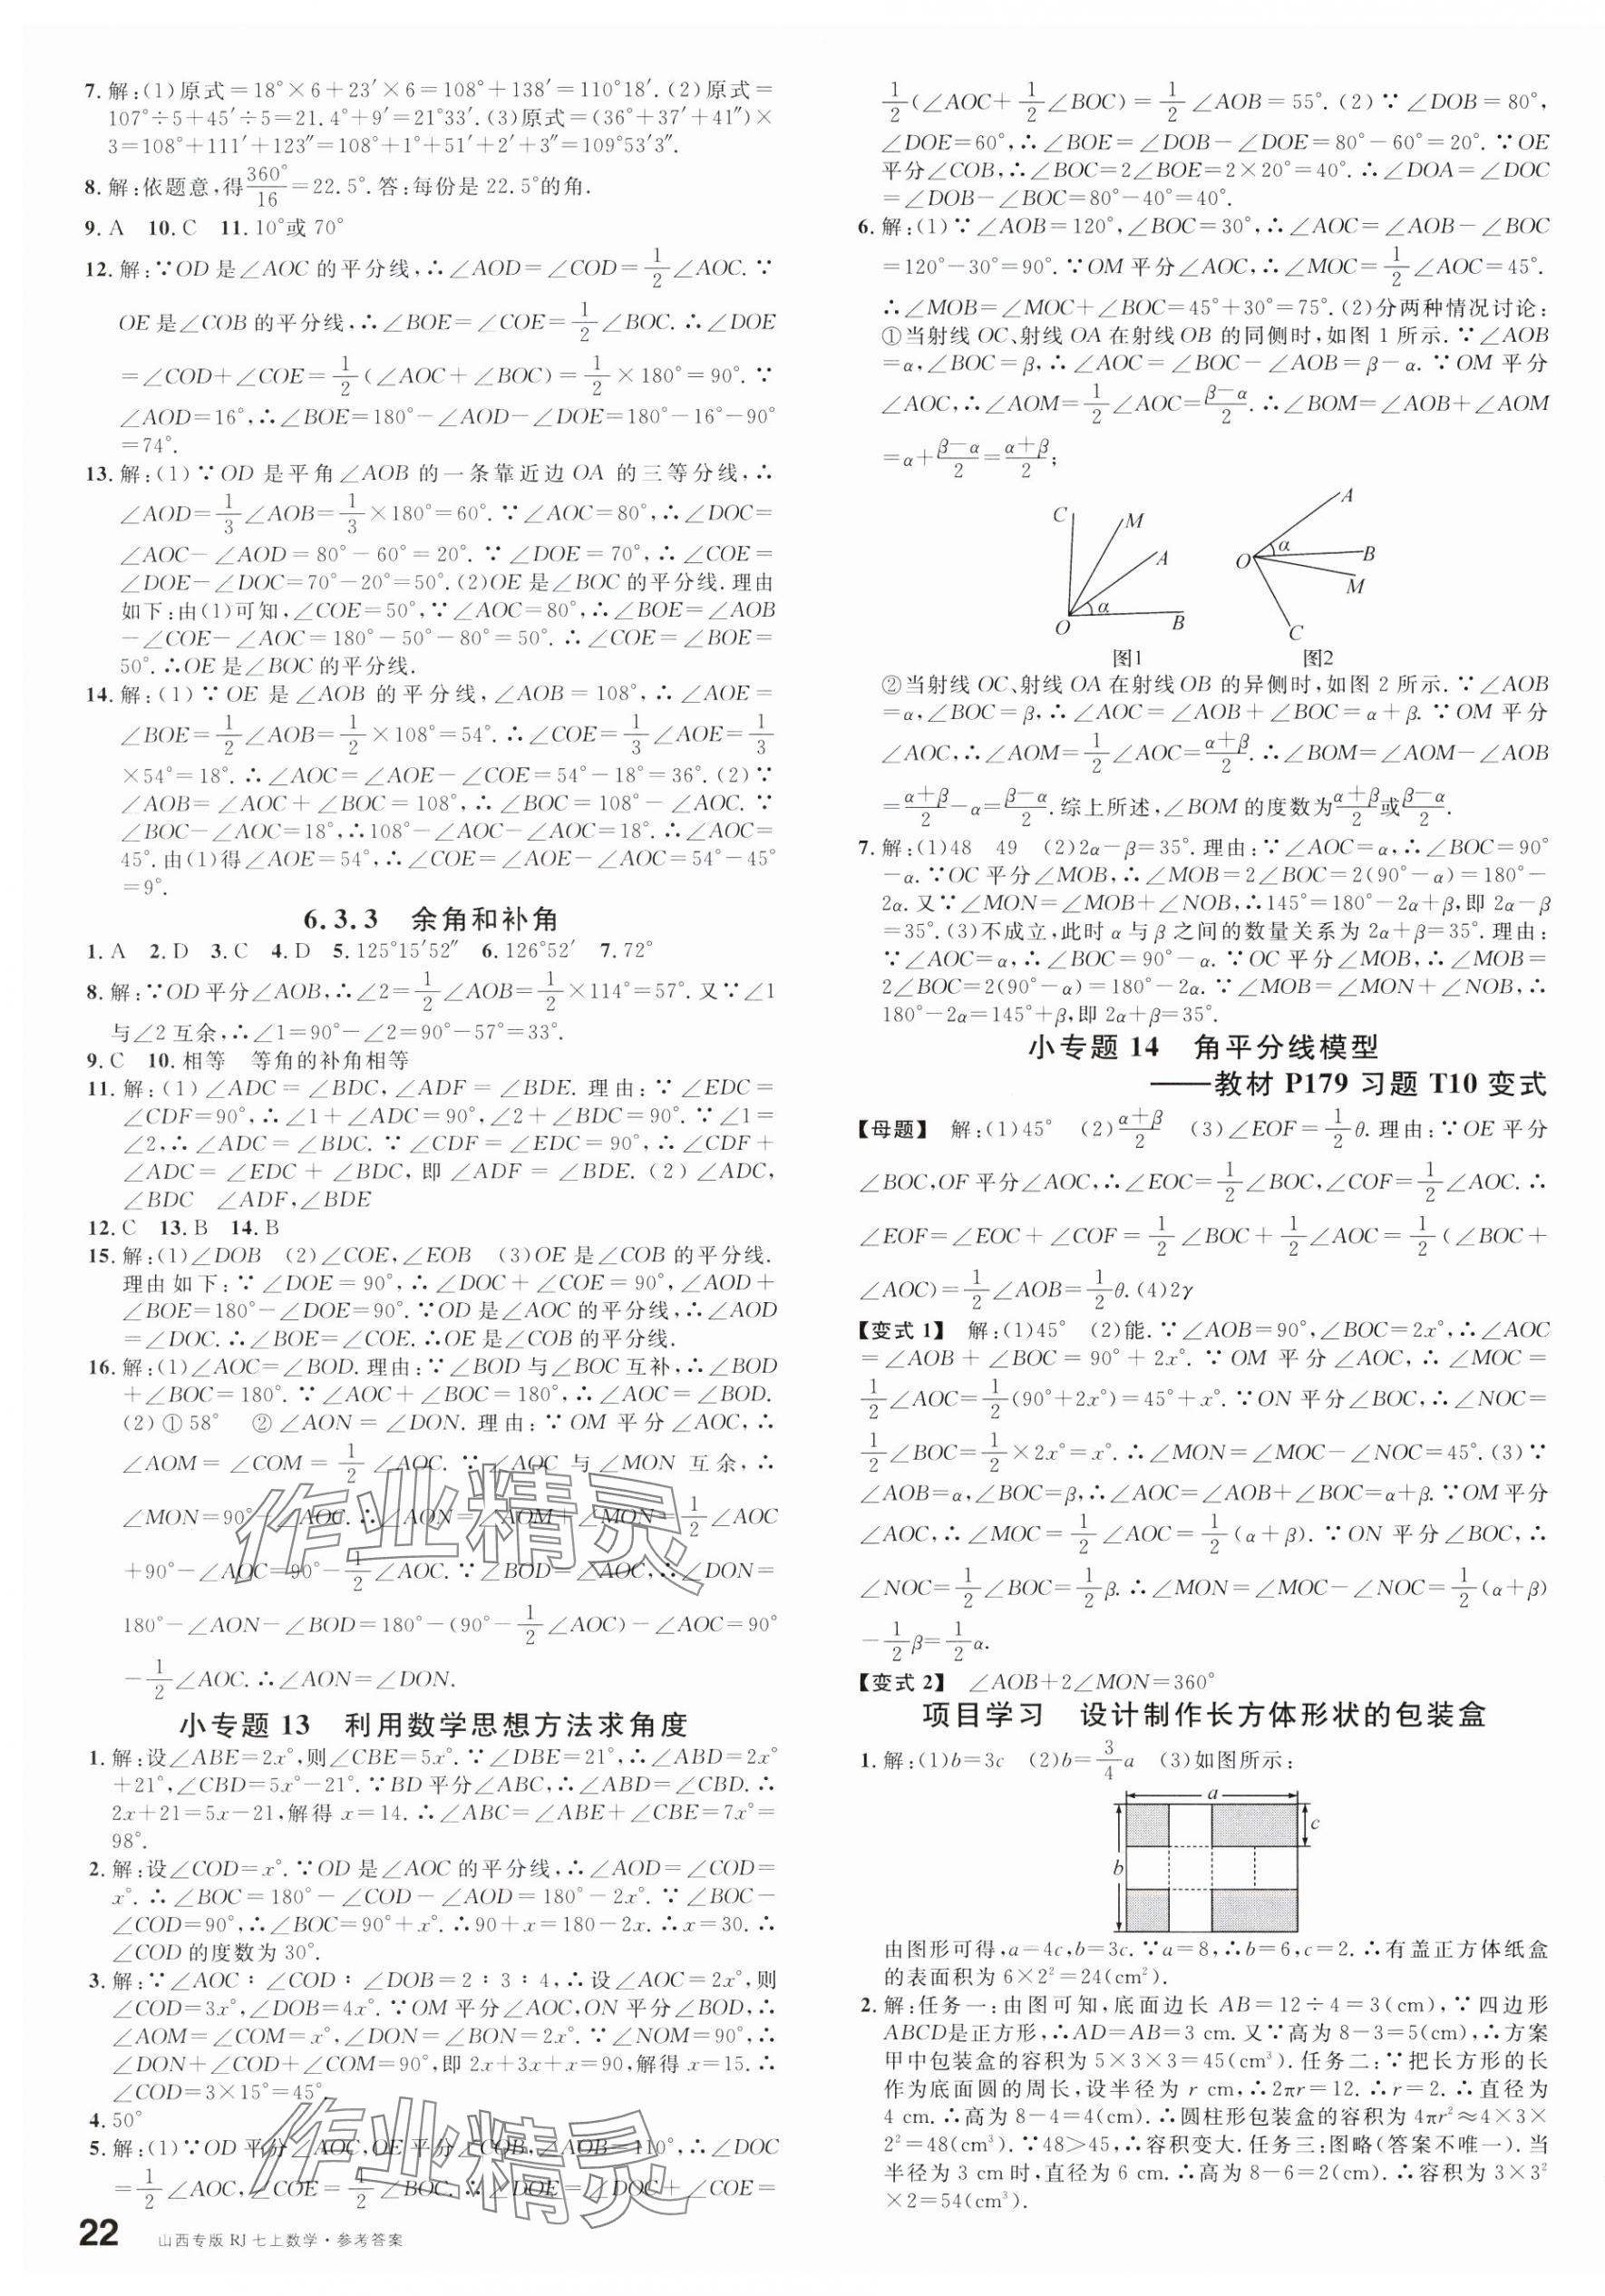 7.解:(1)原式=18°×6+23′×6=108°+138′=110°18′.(2)原式=
107°÷5+45′÷5=21.4°+9′=21°33′.(3)原式=(36°+37′+41″)×
3=108°+111′+123″=108°+1°+51′+2′+3″=109°53′3″.
8.解:依题意,得360°/16=22.5°.答:每份是22.5°的角.
9.A 10.C 11.10°或70°
12.解:∵OD是∠AOC的平分线,∴∠AOD=∠COD=1/2∠AOC.∵
OE是∠COB的平分线,∴∠BOE=∠COE=1/2∠BOC.∴∠DOE
=∠COD+∠COE=1/2(∠AOC+∠BOC)=1/2×180°=90°.∵
∠AOD=16°,∴∠BOE=180°-∠AOD-∠DOE=180°-16°-90°
=74°.
13.解:(1)∵OD是平角∠AOB的一条靠近边OA的三等分线,∴
∠AOD=1/3∠AOB=1/3×180°=60°.∵∠AOC=80°,∴∠DOC=
∠AOC-∠AOD=80°-60°=20°.∵∠DOE=70°,∴∠COE=
∠DOE-∠DOC=70°-20°=50°.(2)OE是∠BOC的平分线.理由
如下:由(1)可知,∠COE=50°,∵∠AOC=80°,∴∠BOE=∠AOB
-∠COE-∠AOC=180°-50°-80°=50°.∴∠COE=∠BOE=
50°.∴OE是∠BOC的平分线.
14.解:(1)∵OE是∠AOB的平分线,∠AOB=108°,∴∠AOE=
∠BOE=1/2∠AOB=1/2×108°=54°.∴∠COE=1/3∠AOE=1/3
×54°=18°.∴∠AOC=∠AOE-∠COE=54°-18°=36°.(2)∵
∠AOB=∠AOC+∠BOC=108°,∴∠BOC=108°-∠AOC.∵
∠BOC-∠AOC=18°,∴108°-∠AOC-∠AOC=18°.∴∠AOC=
45°.由(1)得∠AOE=54°,∴∠COE=∠AOE-∠AOC=54°-45°
=9°.
6.3.3 余角和补角
1.A 2.D 3.C 4.D 5.125°15′52″ 6.126°52′ 7.72°
8.解:∵OD平分∠AOB,∴∠2=1/2∠AOB=1/2×114°=57°.又∵∠1
与∠2互余,∴∠1=90°-∠2=90°-57°=33°.
9.C 10.相等 等角的补角相等
11.解:(1)∠ADC=∠BDC,∠ADF=∠BDE.理由:∵∠EDC=
∠CDF=90°,∴∠1+∠ADC=90°,∠2+∠BDC=90°.∵∠1=
∠2,∴∠ADC=∠BDC.∵∠CDF=∠EDC=90°,∴∠CDF+
∠ADC=∠EDC+∠BDC,即∠ADF=∠BDE.(2)∠ADC,
∠BDC ∠ADF,∠BDE
12.C 13.B 14.B
15.解:(1)∠DOB (2)∠COE,∠EOB (3)OE是∠COB的平分线.
理由如下:∵∠DOE=90°,∴∠DOC+∠COE=90°,∠AOD+
∠BOE=180°-∠DOE=90°.∵OD是∠AOC的平分线,∴∠AOD
=∠DOC.∴∠BOE=∠COE.∴OE是∠COB的平分线.
16.解:(1)∠AOC=∠BOD.理由:∵∠BOD与∠BOC互补,∴∠BOD
+∠BOC=180°.∵∠AOC+∠BOC=180°,∴∠AOC=∠BOD.
(2)①58° ②∠AON=∠DON.理由:∵OM平分∠AOC,∴
∠AOM=∠COM=1/2∠AOC.∵∠AOC与∠MON互余,∴
∠MON=90°-∠AOC.∴∠AON=∠AOM+∠MON=1/2∠AOC
+90°-∠AOC=90°-1/2∠AOC.∵∠BOD=∠AOC,∴∠DON=
180°-∠AON-∠BOD=180°-(90°-1/2∠AOC)-∠AOC=90°
-1/2∠AOC.∴∠AON=∠DON.
小专题13 利用数学思想方法求角度
1.解:设∠ABE=2x°,则∠CBE=5x°.∵∠DBE=21°,∴∠ABD=2x°
+21°,∠CBD=5x°-21°.∵BD平分∠ABC,∴∠ABD=∠CBD.∴
2x+21=5x-21,解得x=14.∴∠ABC=∠ABE+∠CBE=7x°=
98°.
2.解:设∠COD=x°.∵OD是∠AOC的平分线,∴∠AOD=∠COD=
x°.∴∠BOC=180°-∠COD-∠AOD=180°-2x°.∵∠BOC-
∠COD=90°,∴∠BOC=90°+x°.∴90+x=180-2x.∴x=30.∴
∠COD的度数为30°.
3.解:∵∠AOC∶∠COD∶∠DOB=2∶3∶4,∴设∠AOC=2x°,则
∠COD=3x°,∠DOB=4x°.∵OM平分∠AOC,ON平分∠BOD,∴
∠AOM=∠COM=x°,∠DON=∠BON=2x°.∵∠NOM=90°,∴
∠DON+∠COD+∠COM=90°,即2x+3x+x=90,解得x=15.∴
∠COD=3×15°=45°.
4.50°
5.解:(1)∵OD平分∠AOC,OE平分∠COB,∠AOB=110°,∴∠DOC
=1/2∠AOC,∠COE=1/2∠BOC.∴∠DOE=∠DOC+∠COE=
22 山西专版 RJ 七上数学·参考答案
1/2(∠AOC+1/2∠BOC)=1/2∠AOB=55°.(2)∵∠DOB=80°,
∠DOE=60°,∴∠BOE=∠DOB-∠DOE=80°-60°=20°.∵OE
平分∠COB,∴∠BOC=2∠BOE=2×20°=40°.∴∠DOA=∠DOC
=∠DOB-∠BOC=80°-40°=40°.
6.解:(1)∵∠AOB=120°,∠BOC=30°,∴∠AOC=∠AOB-∠BOC
=120°-30°=90°.∵OM平分∠AOC,∴∠MOC=1/2∠AOC=45°.
∴∠MOB=∠MOC+∠BOC=45°+30°=75°.(2)分两种情况讨论:
①当射线OC、射线OA在射线OB的同侧时,如图1所示.∵∠AOB
=α,∠BOC=β,∴∠AOC=∠BOC-∠AOB=β-α.∵OM平分
∠AOC,∴∠AOM=1/2∠AOC=(β-α)/2.∴∠BOM=∠AOB+∠AOM
=α+(β-α)/2=(α+β)/2;
C M A α O B
A α O B M C
图1 图2
②当射线OC、射线OA在射线OB的异侧时,如图2所示.∵∠AOB
=α,∠BOC=β,∴∠AOC=∠AOB+∠BOC=α+β.∵OM平分
∠AOC,∴∠AOM=1/2∠AOC=(α+β)/2.∴∠BOM=∠AOM-∠AOB
=(α+β)/2-α=(β-α)/2.综上所述,∠BOM的度数为(α+β)/2或(β-α)/2.
7.解:(1)48 49 (2)2α-β=35°.理由:∵∠AOC=α,∴∠BOC=90°
-α.∵OC平分∠MOB,∴∠MOB=2∠BOC=2(90°-α)=180°-
2α.又∵∠MON=∠MOB+∠NOB,∴145°=180°-2α+β,即2α-β
=35°.(3)不成立,此时α与β之间的数量关系为2α+β=35°.理由:
∵∠AOC=α,∴∠BOC=90°-α.∵OC平分∠MOB,∴∠MOB=
2∠BOC=2(90°-α)=180°-2α.∵∠MOB=∠MON+∠NOB,∴
180°-2α=145°+β,即2α+β=35°.
小专题14 角平分线模型
——教材P179习题T10变式
【母题】 解:(1)45° (2)(α+β)/2 (3)∠EOF=1/2θ.理由:∵OE平分
∠BOC,OF平分∠AOC,∴∠EOC=1/2∠BOC,∠COF=1/2∠AOC.∴
∠EOF=∠EOC+∠COF=1/2∠BOC+1/2∠AOC=1/2(∠BOC+
∠AOC)=1/2∠AOB=1/2θ.(4)2γ
【变式1】 解:(1)45° (2)能.∵∠AOB=90°,∠BOC=2x°,∴∠AOC
=∠AOB+∠BOC=90°+2x°.∵OM平分∠AOC,∴∠MOC=
1/2∠AOC=1/2(90°+2x°)=45°+x°.∵ON平分∠BOC,∴∠NOC=
1/2∠BOC=1/2×2x°=x°.∴∠MON=∠MOC-∠NOC=45°.(3)∵
∠AOB=α,∠BOC=β,∴∠AOC=∠AOB+∠BOC=α+β.∵OM平分
∠AOC,∴∠MOC=1/2∠AOC=1/2(α+β).∵ON平分∠BOC,∴
∠NOC=1/2∠BOC=1/2β.∴∠MON=∠MOC-∠NOC=1/2(α+β)
-1/2β=1/2α.
【变式2】 ∠AOB+2∠MON=360°
项目学习 设计制作长方体形状的包装盒
1.解:(1)b=3c (2)b=3/4a (3)如图所示:
a
c
b
由图形可得,a=4c,b=3c.∵a=8,∴b=6,c=2.∴有盖正方体纸盒
的表面积为6×2²=24(cm²).
2.解:任务一:由图可知,底面边长AB=12÷4=3(cm),∵四边形
ABCD是正方形,∴AD=AB=3 cm.又∵高为8-3=5(cm),∴方案
甲中包装盒的容积为5×3×3=45(cm³).任务二:∵把长方形的长
作为底面圆的周长,设半径为r cm,∴2πr=12.∴r=2.∴直径为
4 cm.∴高为8-4=4(cm).∴圆柱形包装盒的容积为4πr²≈4×3×
2²=48(cm³).∵48>45,∴容积变大.任务三:图略(答案不唯一).当
半径为3 cm时,直径为6 cm.∴高为8-6=2(cm).∴容积为3×3²
×2=54(cm³).
作业精灵
作业精灵